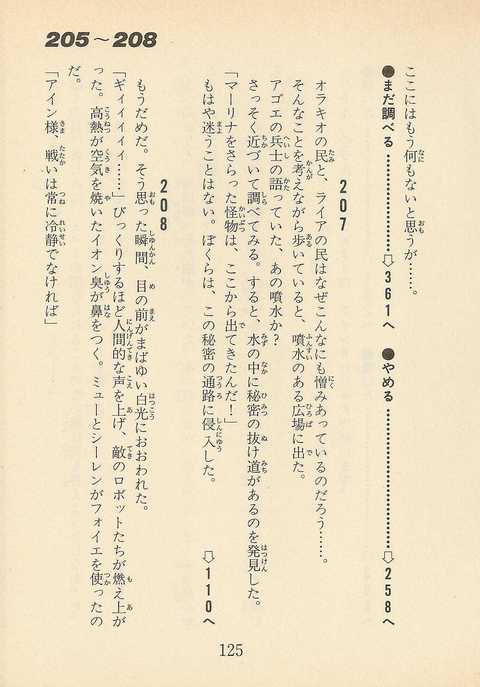 205〜208
ここにはもう何もないと思うが……。
●まだ調べる……………………⇨361へ　●やめる……………………⇨258へ
207
オラキオの民と、ライアの民はなぜこんなにも憎みあっているのだろう……。
そんなことを考えながら歩いていると、噴水のある広場に出た。
アゴエの兵士の語っていた、あの噴水か?
さっそく近づいて調べてみる。すると、水の中に秘密の抜け道があるのを発見した。
「マーリナをさらった怪物は、ここから出てきたんだ!」
もはや迷うことはない。ぼくらは、この秘密の通路に侵入した。
⇨110へ
208
もうだめだ。そう思った瞬間、目の前がまばゆい白光におおわれた。
「ギィィィィィ……」びっくりするほど人間的な声を上げ、敵のロボットたちが燃え上が
った。高熱が空気を焼いたイオン臭が鼻をつく。ミューとシーレンがフォイエを使ったの
だ。
「アイン様、戦いは常に冷静でなければ」
125